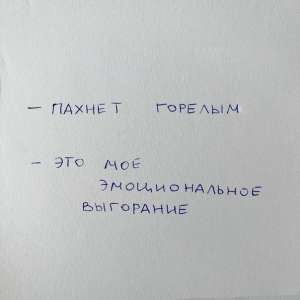 — ПАХНЕТ ГОРЕЛЫМ
— ЭТО МОЕ
ЭМОЦИОНАЛЬНОЕ
ВЫГОРАНИЕ